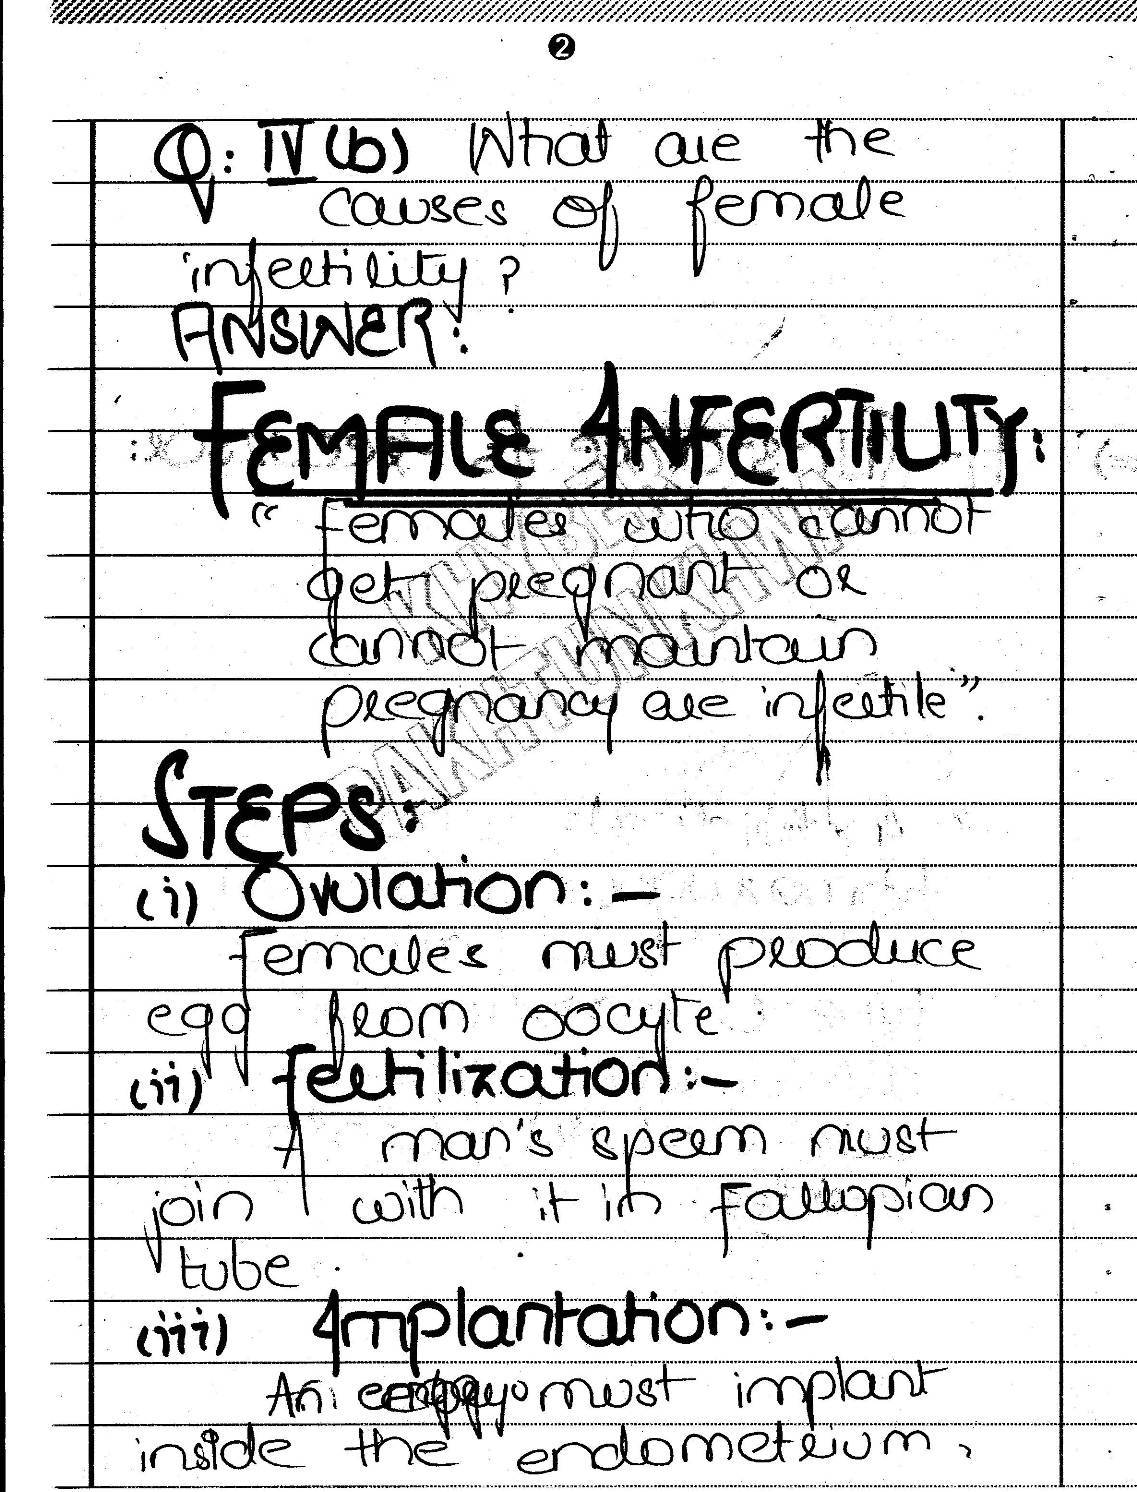 2
Q: IV (b) What are the
causes of female
infertility?
ANSWER:
FEMALE INFERTILITY:
"Females who cannot
get pregnant or
cannot maintain
pregnancy are infertile".
KHYBER
PAKHTUNKHWA
STEPS:
(i) Ovulation:-
Females must produce
egg from oocyte
(ii) Fertilization:-
A man's sperm must
join with it in Fallopian
tube.
(iii) Implantation:-
An must implant
inside the endometrium,